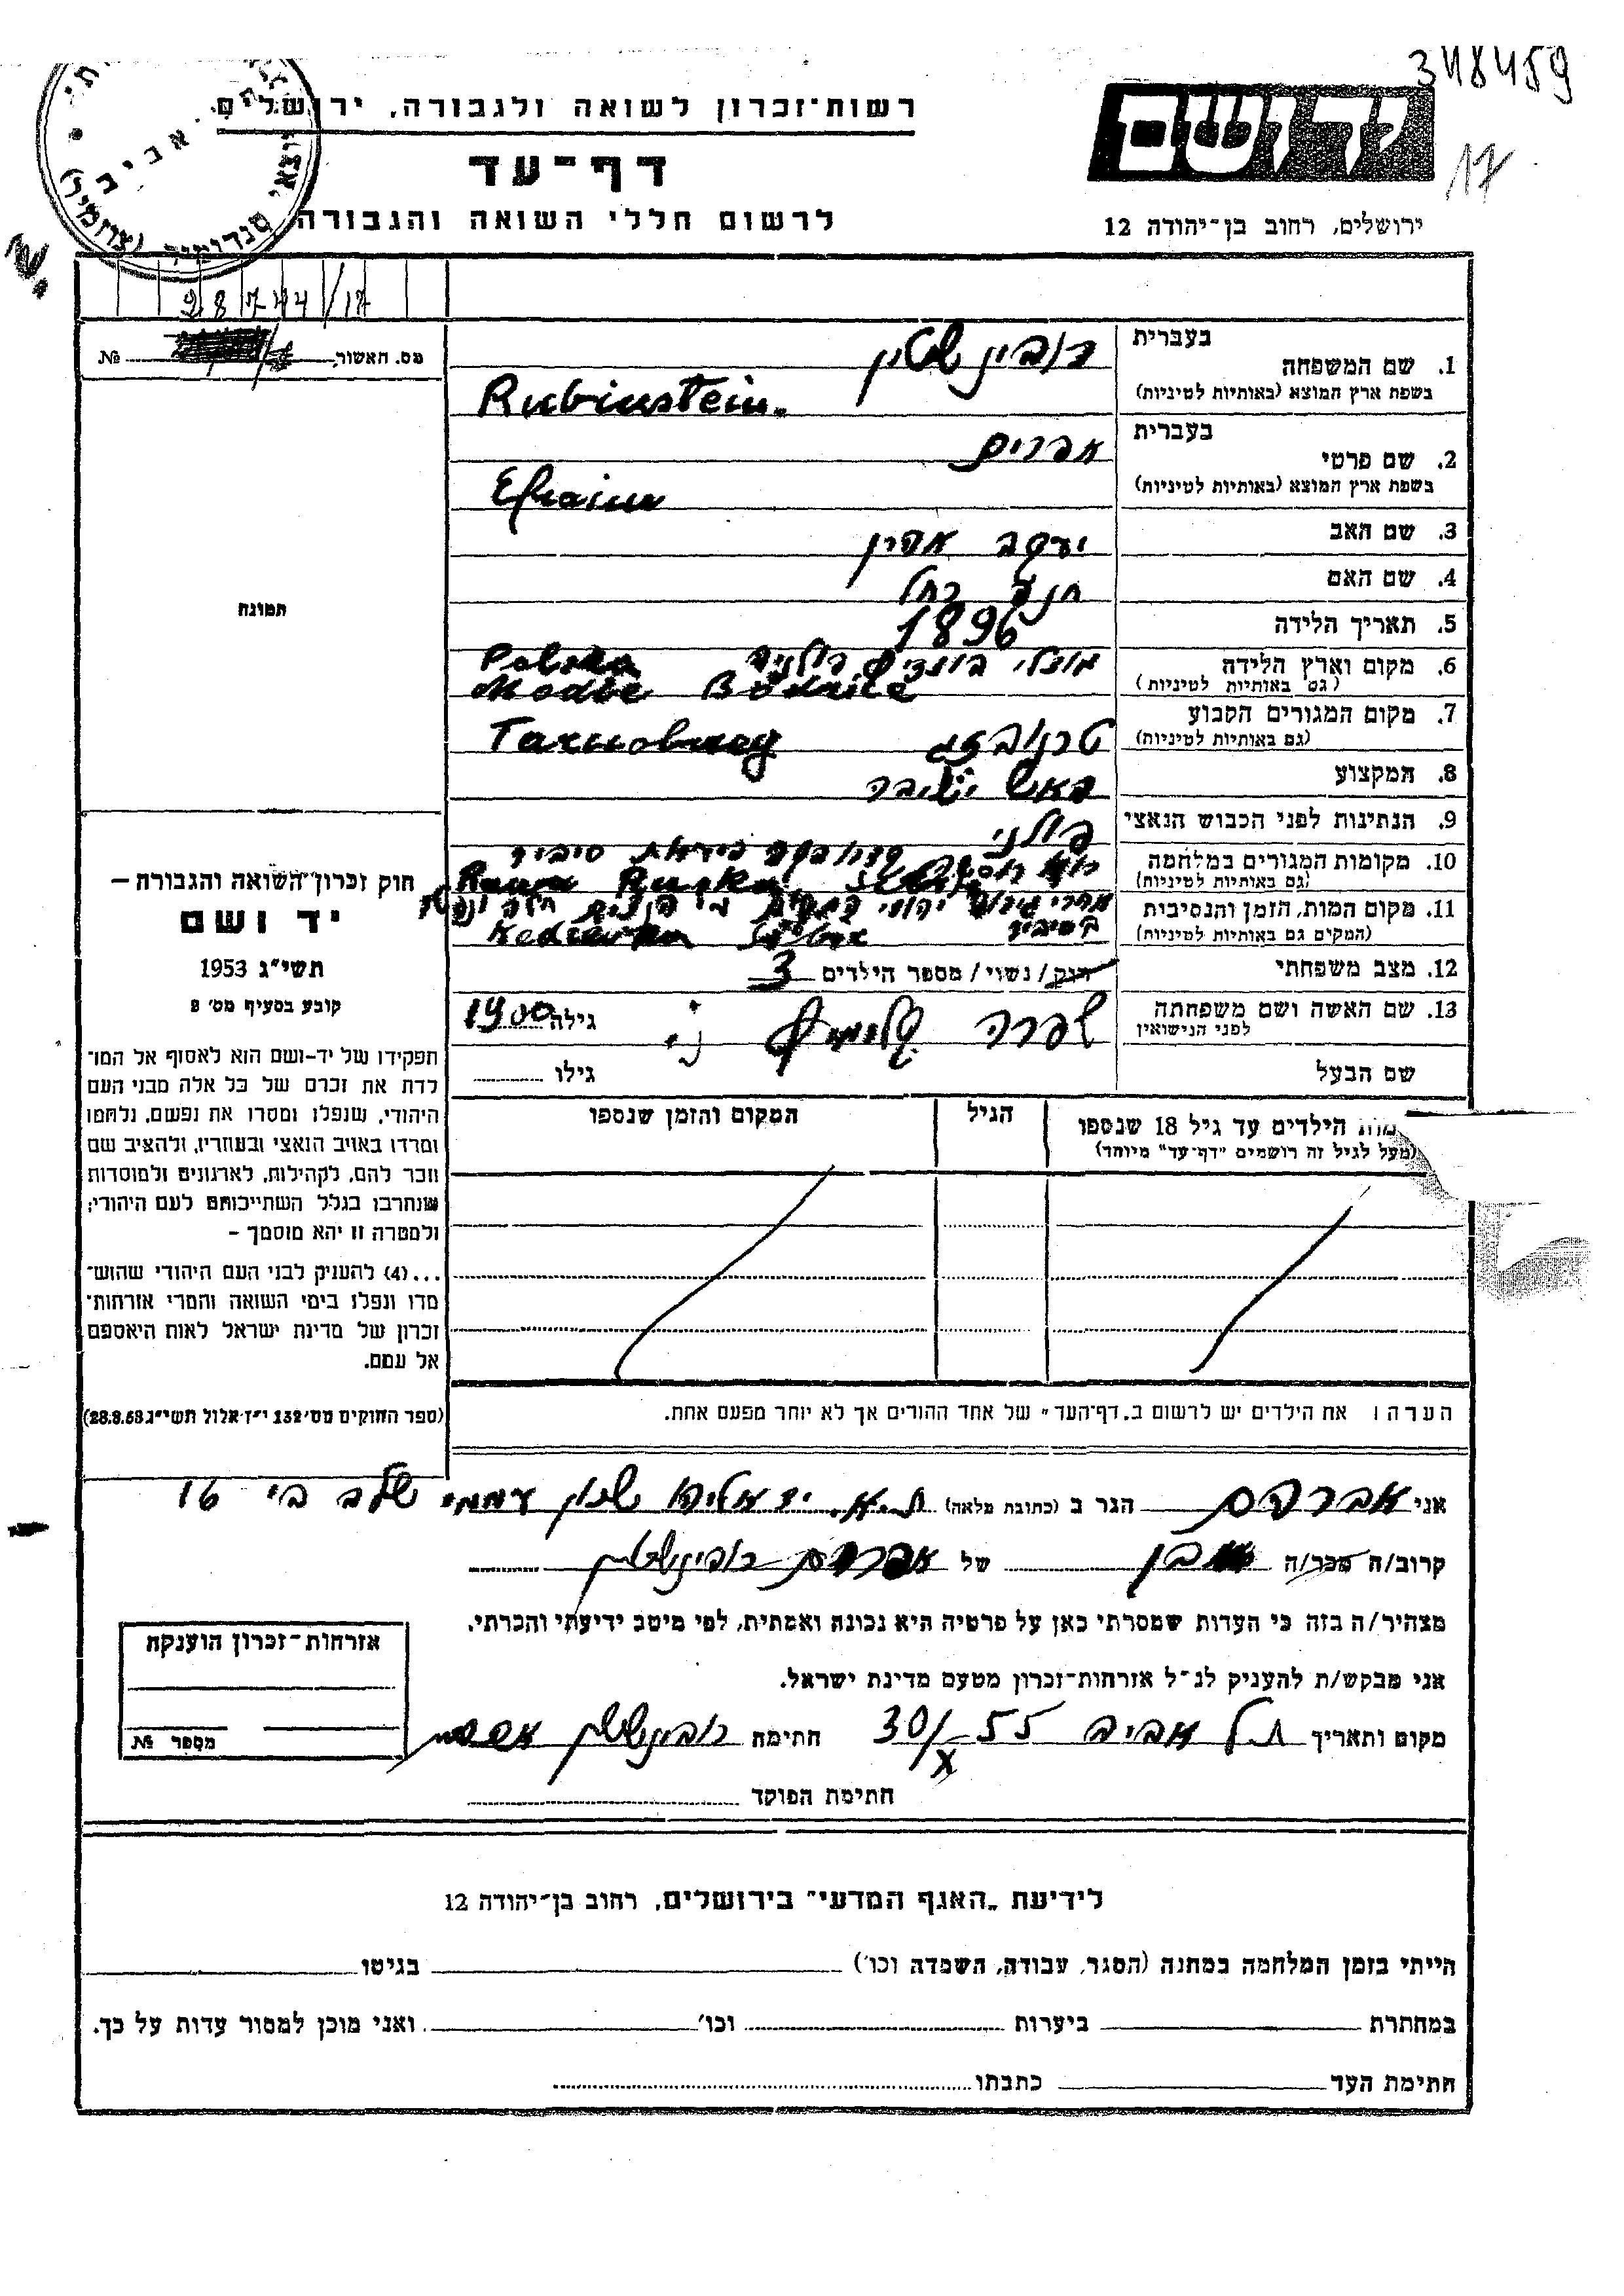 348459
17
יד ושם
ירושלים, רחוב בן־יהודה 12
רשות־זכרון לשואה ולגבורה, ירושלים
דף־עד
לרשום חללי השואה והגבורה
אביב
סנדומיר
28744/17
מס. האשור № 
בעברית
1. שם המשפחה רובינשטיין
בשפת ארץ המוצא (באותיות לטיניות) Rubinstein.
בעברית
2. שם פרטי אפרים
בשפת ארץ המוצא (באותיות לטיניות) Efraim
3. שם האב יעקב
4. שם האם חנה רחל
5. תאריך הלידה 1896
6. מקום וארץ הלידה פולניה Polska
(גם באותיות לטיניות)
7. מקום המגורים הקבוע טרנוברזג Tarnobrzeg
(גם באותיות לטיניות)
8. המקצוע ראש ישיבה
9. הנתינות לפני הכבוש הנאצי פולני
10. מקומות המגורים במלחמה Rawa Ruska
(גם באותיות לטיניות)
11. מקום המות, הזמן והנסיבות
(המקום גם באותיות לטיניות)
12. מצב משפחתי רוק / נשוי / מספר הילדים 3
13. שם האשה ושם משפחתה שפרה גילה 1900
לפני הנישואין
שם הבעל גילו
שמות הילדים עד גיל 18 שנספו הגיל המקום והזמן שנספו
(מעל לגיל זה רושמים "דף־עד" מיוחד)
הערה: את הילדים יש לרשום ב„דף־העד" של אחד ההורים אך לא יותר מפעם אחת.
תמונה
חוק זכרון השואה והגבורה –
יד ושם
תשי"ג 1953
קובע בסעיף מס' 2
תפקידו של יד-ושם הוא לאסוף אל המו־
לדת את זכרם של כל אלה מבני העם
היהודי, שנפלו ומסרו את נפשם, נלחמו
ומרדו באויב הנאצי ובעוזריו, ולהציב שם
וזכר להם, לקהילות, לארגונים ולמוסדות
שנחרבו בגלל השתייכותם לעם היהודי;
ולמטרה זו יהא מוסמך –
...(4) להעניק לבני העם היהודי שהוש־
מדו ונפלו בימי השואה והמרי אזרחות־
זכרון של מדינת ישראל לאות היאספם
אל עמם.
(ספר החוקים מס' 132 י"ז אלול תשי"ג 28.8.53)
אני אברהם הגר ב (כתובת מלאה) ת.א. יד אליהו שכון עממי שלב ב' 16
קרוב/ה מכר/ה בן של רובינשטיין
מצהיר/ה בזה כי העדות שמסרתי כאן על פרטיה היא נכונה ואמתית, לפי מיטב ידיעתי והכרתי.
אני מבקש/ת להעניק לנ"ל אזרחות־זכרון מטעם מדינת ישראל.
מקום ותאריך תל אביב 30/X 55 חתימה רובינשטיין
חתימת הפוקד
אזרחות־זכרון הוענקה
מספר №
לידיעת „האגף המדעי" בירושלים, רחוב בן־יהודה 12
הייתי בזמן המלחמה במחנה (הסגר, עבודה, השמדה וכו') בגיטו
במחתרת ביערות וכו' ואני מוכן למסור עדות על כך.
חתימת העד כתבתו